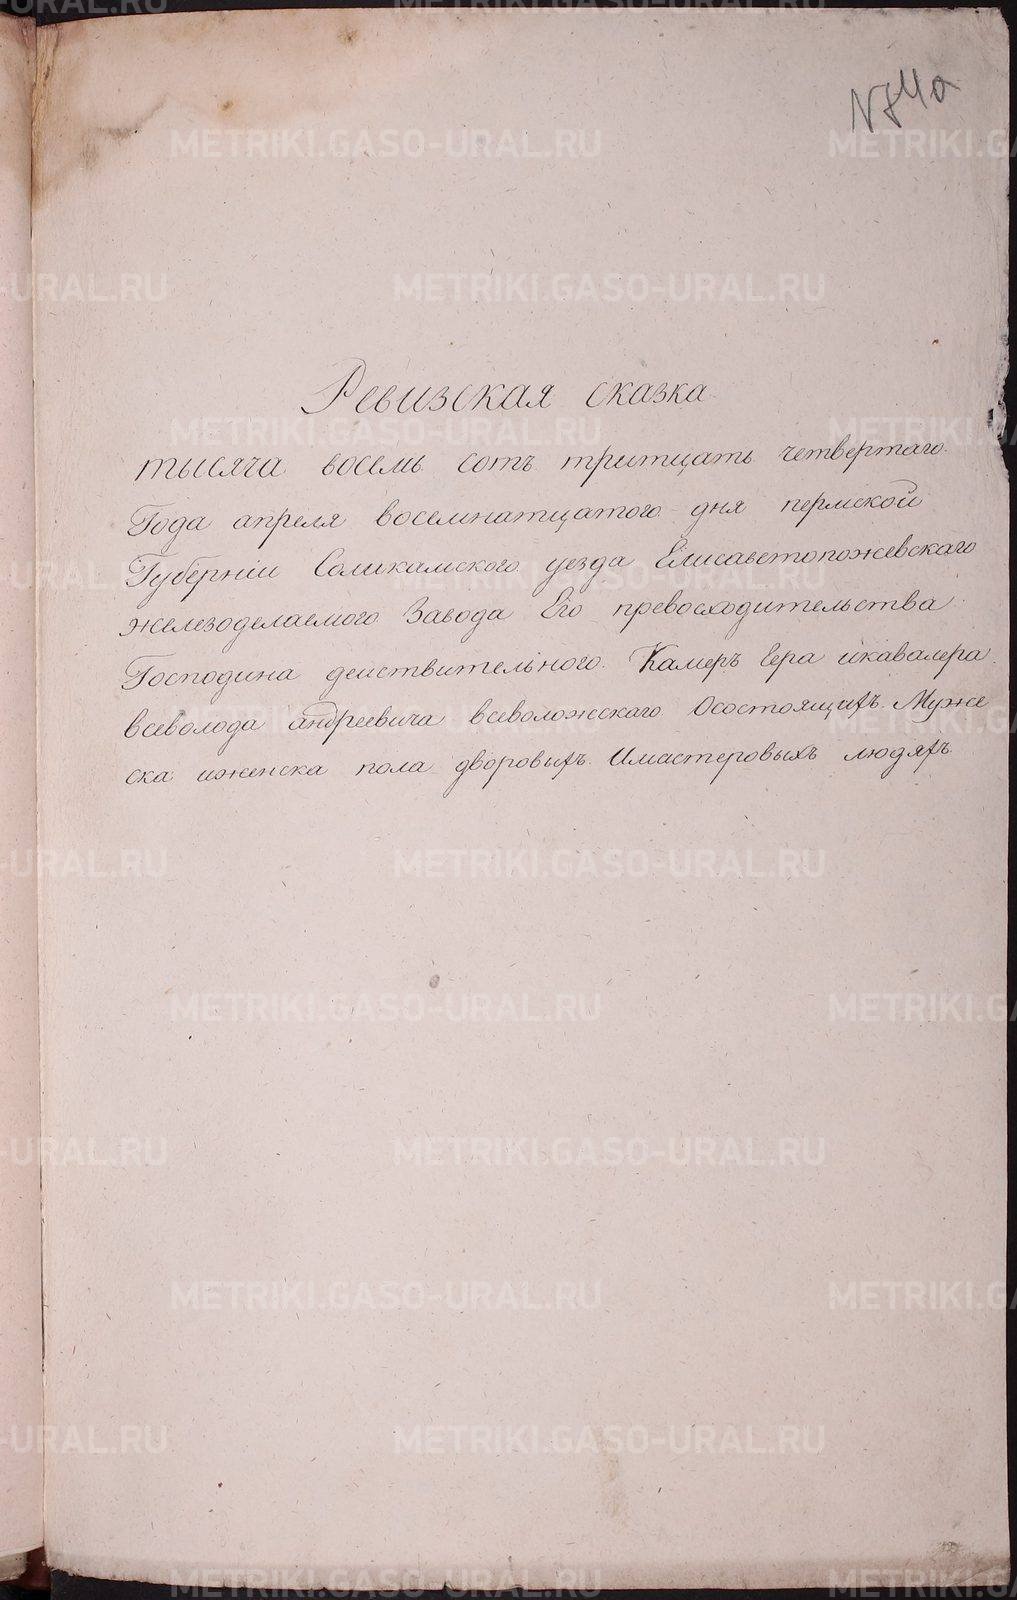 Ревизская сказка
тысяча восемь сотъ тритцать четвертаго
Года апреля восемнатцатого дня пермской
Губерніи Соликамского уезда Елисаветопожевскаго
железоделаемого Завода Его превосходительства
Господина действительного Камеръ Гера икавалера
всеволода андреевича всеволожскаго Осостоящихъ Муже
ска иженска пола дворовыхъ Имастеровыхъ людяхъ
METRIKI.GASO-URAL.RU